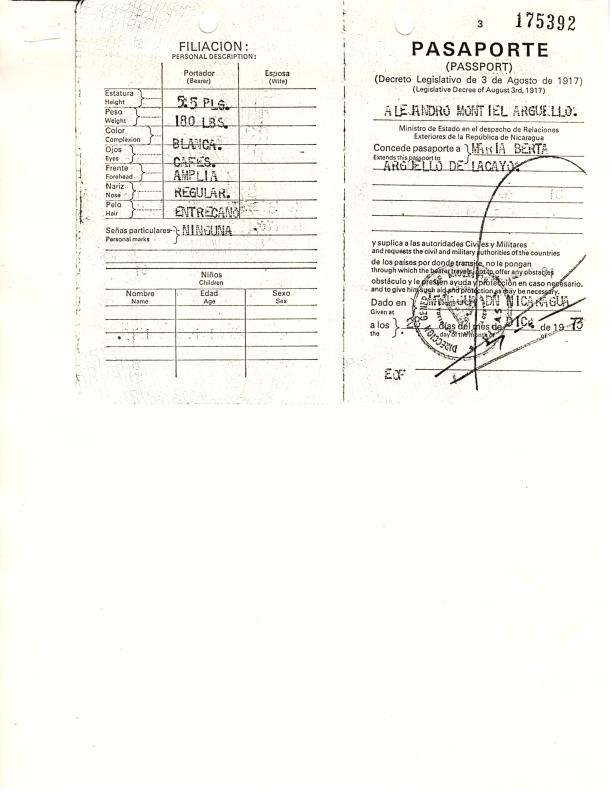 FILIACION:
PERSONAL DESCRIPTION:
Portador
(Bearer)
Esposa
(Wife)
Estatura
Height
5:5 PLG.
Peso
Weight
180 LBS.
Color
Complexion
BLANCA.
Ojos
Eyes
CAFES.
Frente
Forehead
AMPLIA
Nariz
Nose
REGULAR.
Pelo
Hair
ENTRECANO
Señas particulares
Personal marks
NINGUNA
Niños
Children
Nombre
Name
Edad
Age
Sexo
Sex
3
175392
PASAPORTE
(PASSPORT)
(Decreto Legislativo de 3 de Agosto de 1917)
(Legislative Decree of August 3rd, 1917)
ALEJANDRO MONTIEL ARGUELLO.
Ministro de Estado en el despacho de Relaciones
Exteriores de la República de Nicaragua
Concede pasaporte a MARIA BERTA
Extends this passport to
ARGUELLO DE LACAYO.
y suplica a las autoridades Civiles y Militares
and requests the civil and military authorities of the countries
de los países por donde transite, no le pongan
through which the bearer travels, not to offer any obstacles
obstáculo y le presten ayuda y protección en caso necesario.
and to give him such aid and protection as may be necessary.
Dado en MANAGUA DN NICARAGUA
Given at
a los 28 días del mes de DIC. de 19 73
the day of the month of
DIRECCION GENERAL
EOF